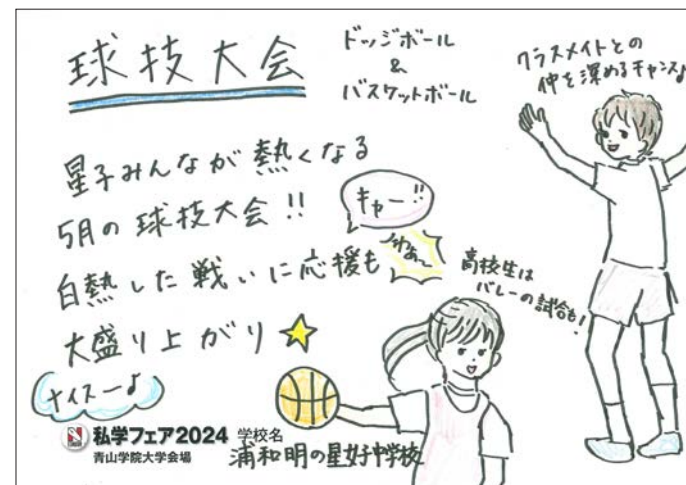 球技大会
ドッジボール
&
バスケットボール
クラスメイトとの
仲を深めるチャンス♪
星子みんなが熱くなる
5月の球技大会!!
白熱した戦いに応援も
大盛り上がり
キャー!!
わぁー
高校生は
バレーの試合も!
ナイスー♪
私学フェア2024 学校名
青山学院大学会場
浦和明の星女子中学校